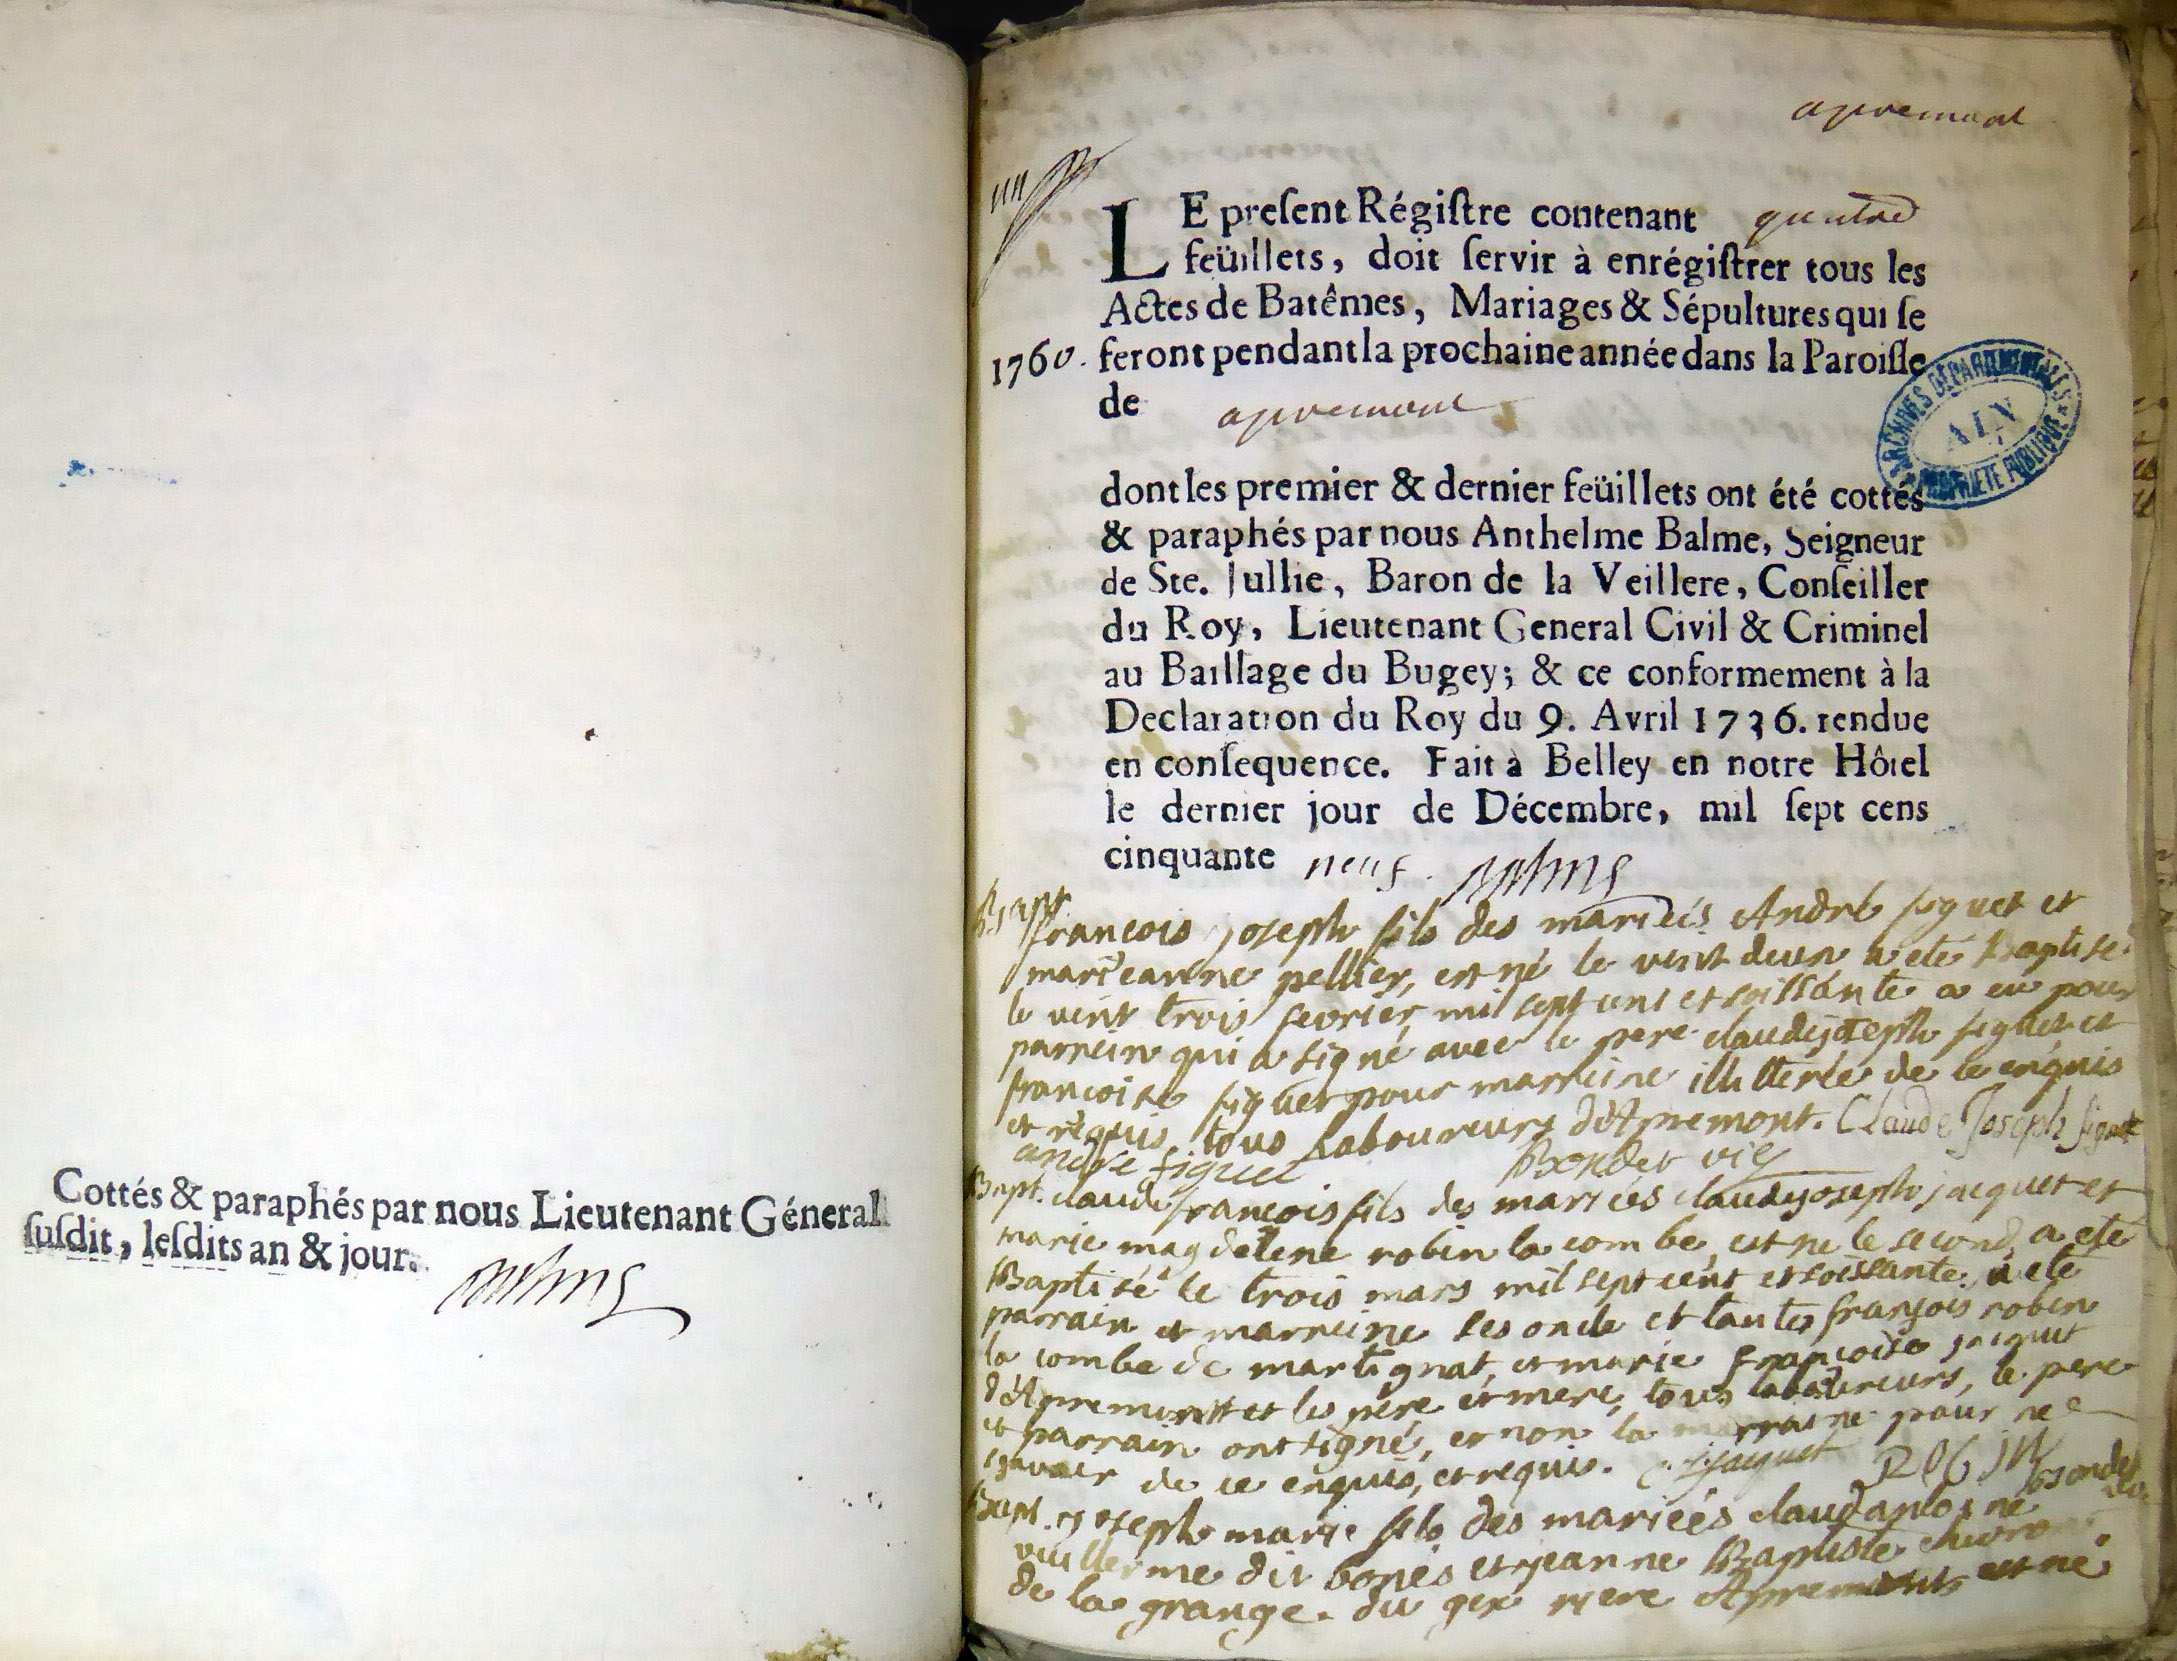 Cottés & paraphés par nous Lieutenant Géneral
ſuſdit, leſdits an & jour.
apremont
LE preſent Régiſtre contenant quatre
feüillets, doit ſervir à enrégiſtrer tous les
Actes de Batêmes, Mariages & Sépultures qui ſe
1760. feront pendant la prochaine année dans la Paroiſſe
de apremont
ARCHIVES DEPARTEMENTALES
AIN
PROPRIETE PUBLIQUE
dont les premier & dernier feüillets ont été cottés
& paraphés par nous Anthelme Balme, Seigneur
de Ste. Jullie, Baron de la Veillere, Conſeiller
du Roy, Lieutenant General Civil & Criminel
au Baillage du Bugey; & ce conformement à la
Declaration du Roy du 9. Avril 1736. rendue
en conſequence. Fait à Belley en notre Hôtel
le dernier jour de Décembre, mil ſept cens
cinquante neuf. Balme
Bapt
francois joseph fils des mariés André figuet et
marieanne pellier, est né le vint deux a eté Baptisé
le vint trois fevrier mil sept cent et soissante a eu pour
parrein qui a signé avec le pere claudejoseph figuet et
francoise figuet pour marreine illitterée de ce enquis
et requis tous Laboureurs d'Apremont. Claude Joseph figuet
andre figuet Bondet vic
Bapt. claude francois fils des mariés claudejoseph jacquet et
marie magdelene robin la combe est né le second, a eté
Baptisé le trois mars mil sept cent et soissante. a eté
parrain et marreine ses oncle et tante françois robin
la combe de martignat, et marie françoise jacquet
d'Apremont et les père et mere, tous laboureurs, le pere
et parrain ont signé, et non la marraine pour ne
sçavoir de ce enquis, et requis. c. j. jacquet ROBIN Bondet
Bapt. joseph marie fils des mariés claudantoine
vuillerme dit bones et jeanne Baptiste
de la grange du gex riere Apremont est né